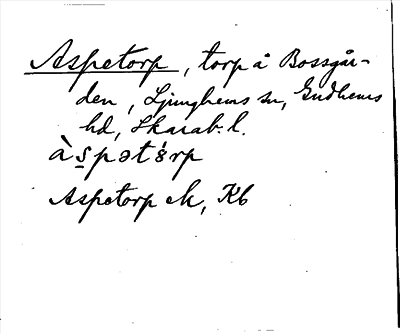 Aspetorp, torp å Bossgår-
den, Ljunghems sn, Gudhems
hd, Skarab. l.
às̱pətŏ́rp
Aspetorp ek, Kb